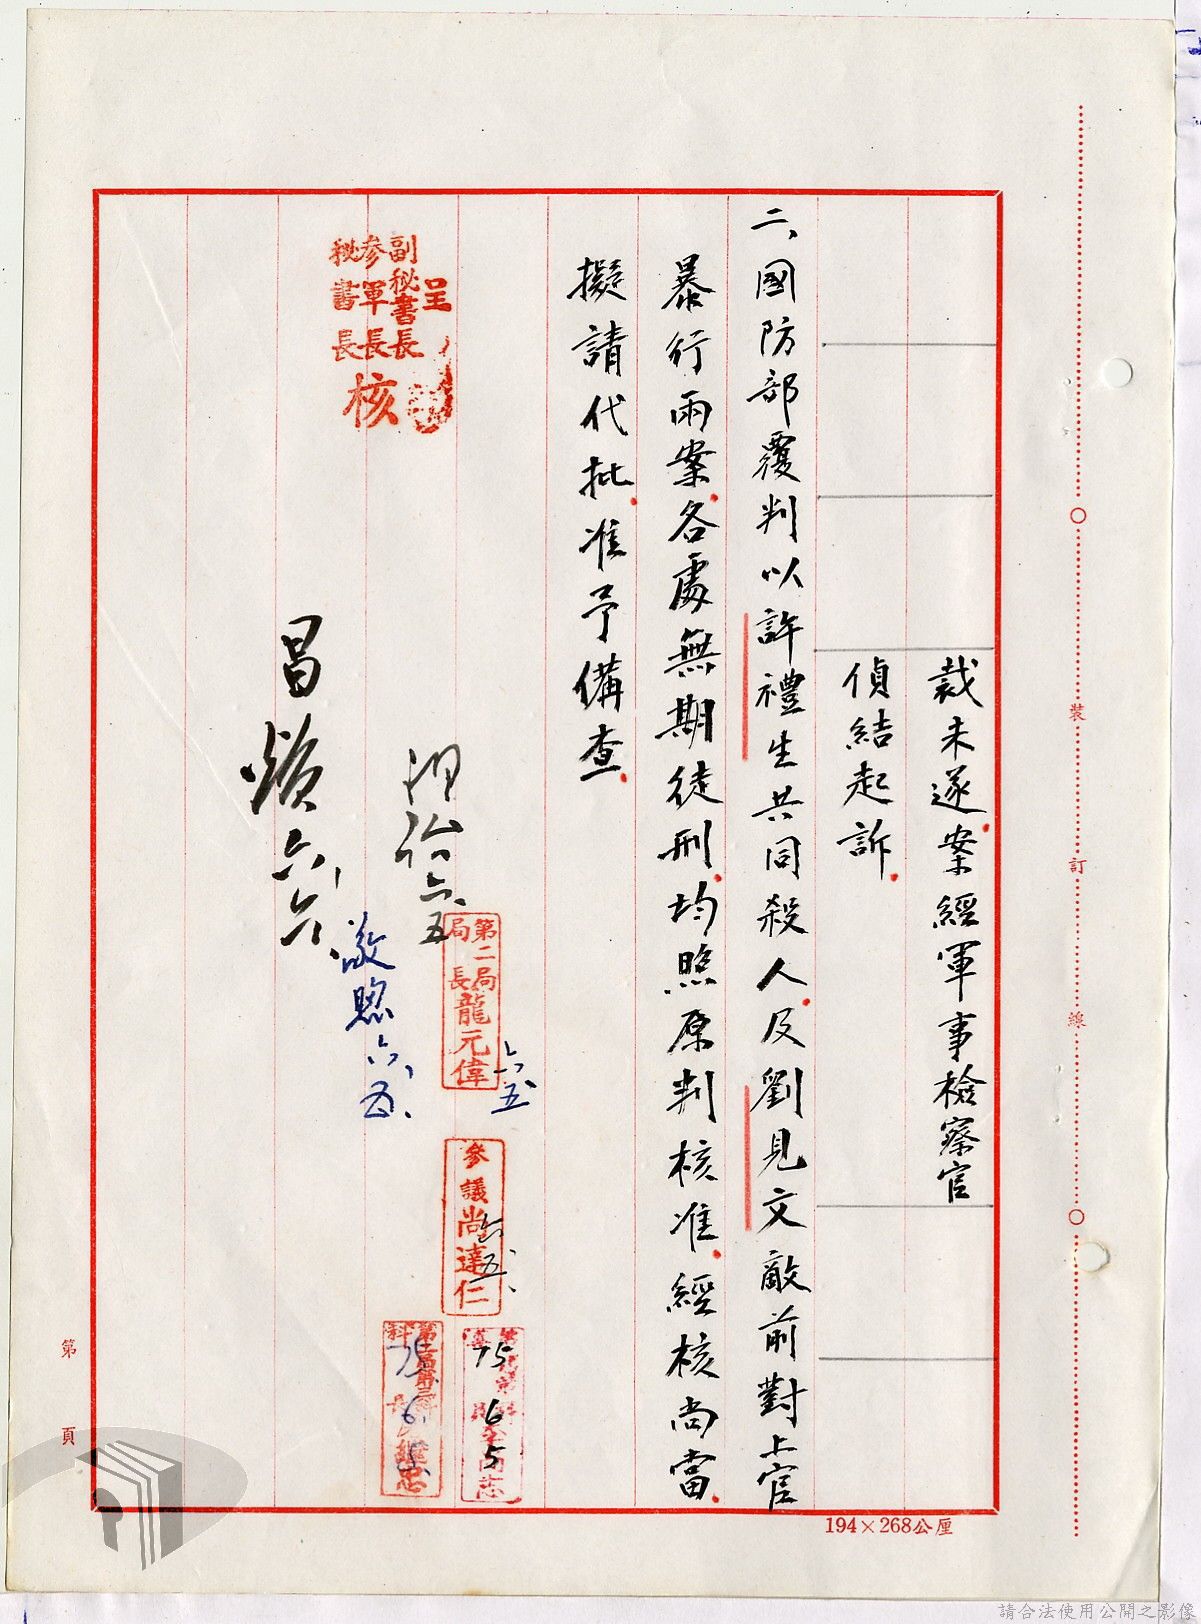 裁未遂案經軍事檢察官
偵結起訴
二、國防部覆判以許禮生共同殺人及劉見文敵前對上官
暴行兩案各處無期徒刑均照原判核准經核尚當
擬請代批准予備查
呈
副秘書長
參軍長
秘書長
核
第二局
局長龍元偉
六、五
參議尚達仁
六、五、
75
6
5
75
6
5
六、五
六、五、
昌煥六、六、
裝
訂
線
第
頁
194×268公厘
請合法使用公開之影像